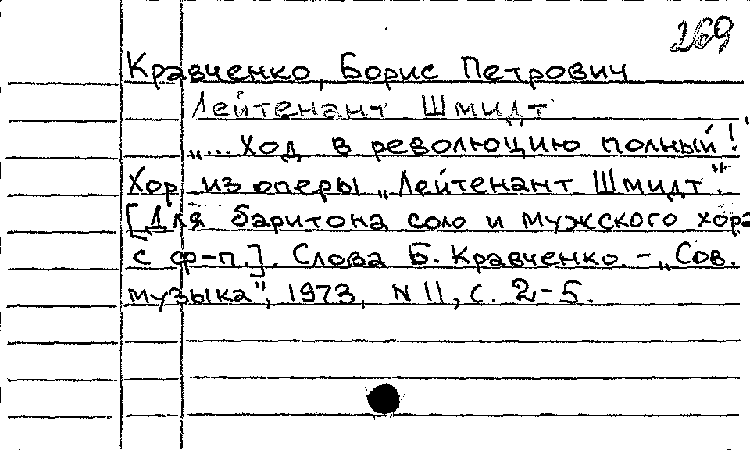 269
Кравченко, Борис Петрович
Лейтенант Шмидт
„... Ход в революцию полный!"
Хор из оперы „Лейтенант Шмидт".
[Для баритона соло и мужского хора
с ф-п.]. Слова Б. Кравченко. - „Сов.
музыка", 1973, N 11, с. 2-5.